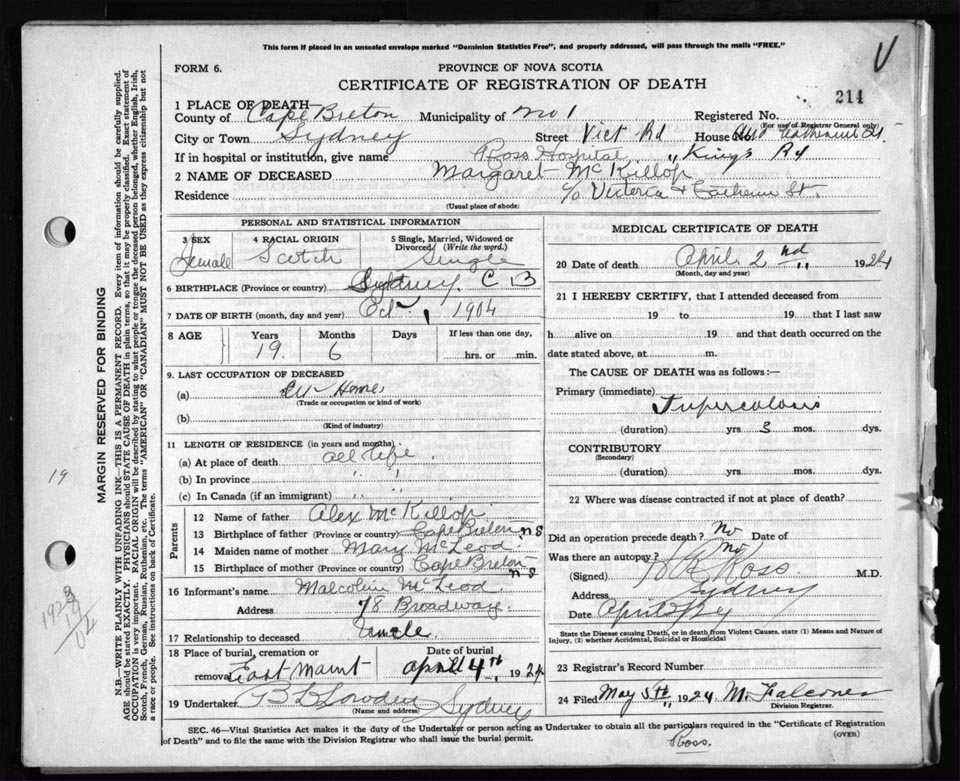 This form if placed in an unsealed envelope marked "Dominion Statistics Free", and properly addressed, will pass through the mails "FREE."
V
FORM 6.
PROVINCE OF NOVA SCOTIA
CERTIFICATE OF REGISTRATION OF DEATH
214
1 PLACE OF DEATH
County of Cape Breton Municipality of No 1 Registered No.
(For use of Registrar General only)
City or Town Sydney Street Vict Rd House
If in hospital or institution, give name Ross Hospital " King's Rd
2 NAME OF DECEASED Margaret McKillop
Residence c/o Victoria + St.
(Usual place of abode)
PERSONAL AND STATISTICAL INFORMATION
3 SEX Female 4 RACIAL ORIGIN Scotch 5 Single, Married, Widowed or Divorced (Write the word.) Single
6 BIRTHPLACE (Province or country) Sydney. C B
7 DATE OF BIRTH (month, day and year) Oct , 1904
8 AGE Years 19. Months 6 Days If less than one day, hrs. or min.
9. LAST OCCUPATION OF DECEASED
(a) At Home
(Trade or occupation or kind of work)
(b)
(Kind of industry)
11 LENGTH OF RESIDENCE (in years and months)
(a) At place of death all life
(b) In province " "
(c) In Canada (if an immigrant) " "
Parents
12 Name of father Alex McKillop
13 Birthplace of father (Province or country) Cape Breton N S
14 Maiden name of mother Mary McLeod
15 Birthplace of mother (Province or country) Cape Breton N S
16 Informant's name Malcolm McLeod
Address 78 Broadway.
17 Relationship to deceased Uncle
18 Place of burial, cremation or removal East Mount Date of burial April 4th, 1924
19 Undertaker Sydney
(Name and address)
MEDICAL CERTIFICATE OF DEATH
20 Date of death April 2nd " 1924
(Month, day and year)
21 I HEREBY CERTIFY, that I attended deceased from
19 to 19 that I last saw
h alive on 19 and that death occurred on the
date stated above, at m.
The CAUSE OF DEATH was as follows:—
Primary (immediate)
Tupercolous
(duration) yrs 3 mos. dys.
CONTRIBUTORY
(Secondary)
(duration) yrs. mos. dys.
22 Where was disease contracted if not at place of death?
Did an operation precede death? No Date of
Was there an autopsy? No
(Signed) Ross M.D.
Address Sydney
Date
State the Disease causing Death, or in death from Violent Causes, state (1) Means and Nature of
Injury, (2) whether Accidental, Suicidal or Homicidal
23 Registrar's Record Number
24 Filed May 5th, 1924 M. Falconer
Division Registrar.
SEC. 46—Vital Statistics Act makes it the duty of the Undertaker or person acting as Undertaker to obtain all the particulars required in the "Certificate of Registration
of Death" and to file the same with the Division Registrar who shall issue the burial permit.
(OVER)
Ross.
MARGIN RESERVED FOR BINDING
N.B.—WRITE PLAINLY WITH UNFADING INK—THIS IS A PERMANENT RECORD. Every item of information should be carefully supplied.
AGE should be stated EXACTLY. PHYSICIANS should STATE CAUSE OF DEATH in plain terms, so that it may be properly classified. Exact statement of
OCCUPATION is very important. RACIAL ORIGIN will be described by stating to what people or tongue the deceased person belonged, whether English, Irish,
Scotch, French, German, Russian, Ruthenian, etc. The terms "AMERICAN" or "CANADIAN" MUST NOT BE USED as they express citizenship but not
a race or people. See instructions on back of Certificate.
19